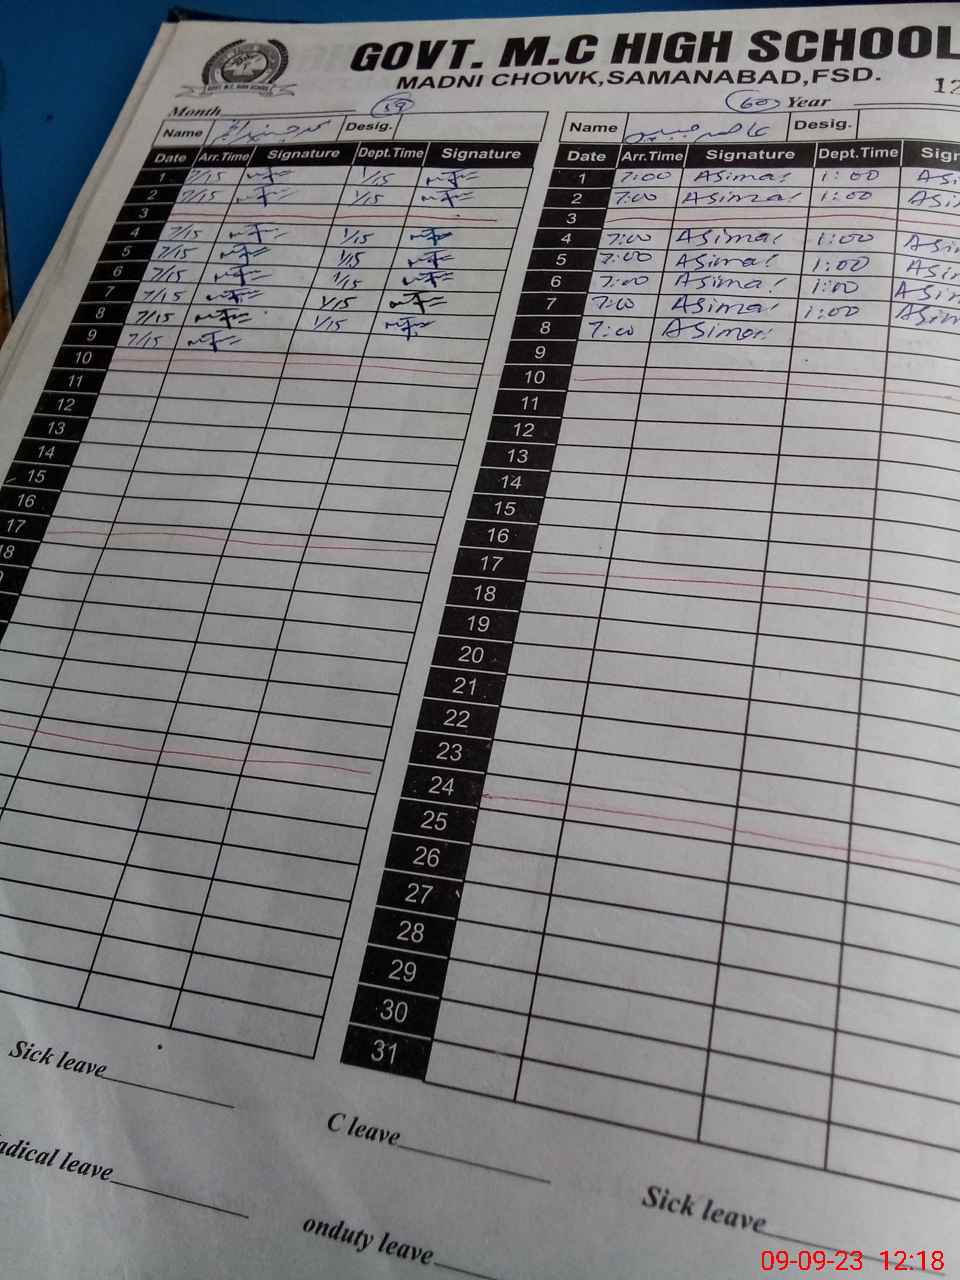 GOVT. M.C HIGH SCHOOL
MADNI CHOWK,SAMANABAD,FSD.
GOVT. M.C HIGH SCHOOL
12
Month 59 60 Year
Name Desig. Name عاصمہ Desig.
Date Arr.Time Signature Dept.Time Signature Date Arr.Time Signature Dept.Time Sign
1 7/15 1/15 1 7:00 Asima 1:00 Asi
2 7/15 1/15 2 7:00 Asima 1:00 Asi
3 3
4 7/15 1/15 4 7:00 Asima 1:00 Asi
5 7/15 1/15 5 7:00 Asima 1:00 Asi
6 7/15 1/15 6 7:00 Asima 1:00 Asim
7 7/15 1/15 7 7:00 Asima 1:00 Asim
8 7/15 1/15 8 7:00 Asima
9 7/15 9
10 10
11 11
12 12
13 13
14 14
15 15
16 16
17 17
18 18
19
20
21
22
23
24
25
26
27
28
29
30
31
Sick leave
C leave
adical leave
Sick leave
onduty leave
09-09-23 12:18